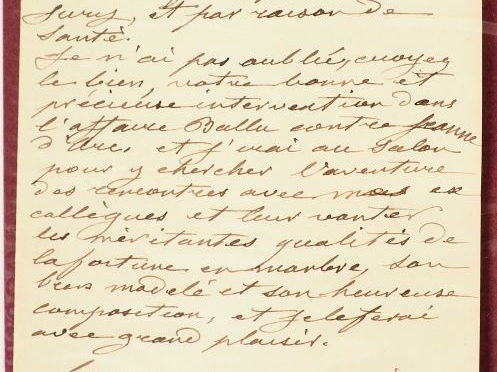 Jury, Et par raison de
santé.
Je n'ai pas oublié, croyez
le bien, votre bonne et
précieuse intervention dans
l'affaire Ballu contre Jeanne
d'Arc, et j'irai au Salon
pour y chercher l'aventure
des rencontres avec mes ex
collègues et leur vanter
les méritantes qualités de
la fortune en marbre, son
bien modelé et son heureuse
composition, et je le ferai
avec grand plaisir.